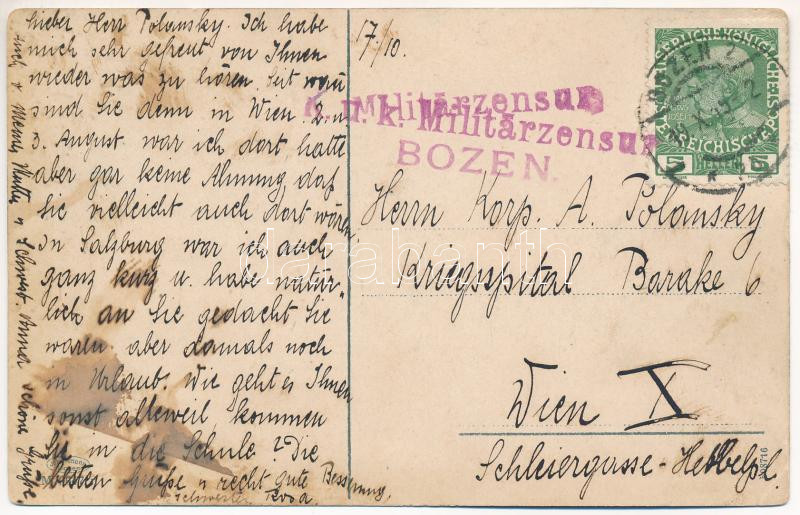 17/10.
Lieber Herr Polansky. Ich habe
mich sehr gefreut von Ihnen
wieder was zu hören. Seit wan
sind Sie denn in Wien 2 u.
3. August war ich dort hatte
aber gar keine Ahnung daß
Sie vielleicht auch dort wären.
In Salzburg war ich auch
ganz kurz u. habe natür-
lich an Sie gedacht Sie
waren aber damals noch
in Urlaub. Wie geht es Ihnen
sonst alleweil, kommen
Sie in die Schule? Die
besten Grüße u recht gute Besserung,
Schwester
Auch v. Mutter u Schwest. Anna schöne Grüße
K. u. k. Militärzensur
Militärzensur
BOZEN.
BOZEN 2
5 5
Herrn Korp. A. Polansky
Kriegsspital Barake 6
Wien X
Schleiergasse-
darabanth